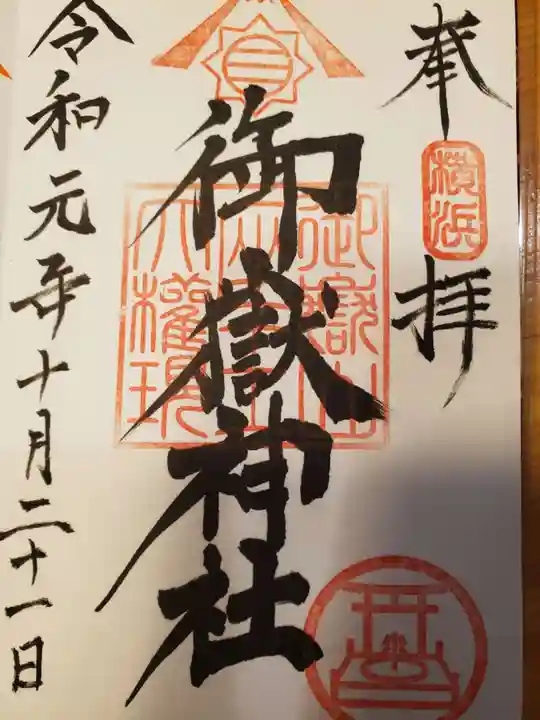 奉拝
横浜
御嶽神社
御嶽山
大権現
令和元年十月二十一日